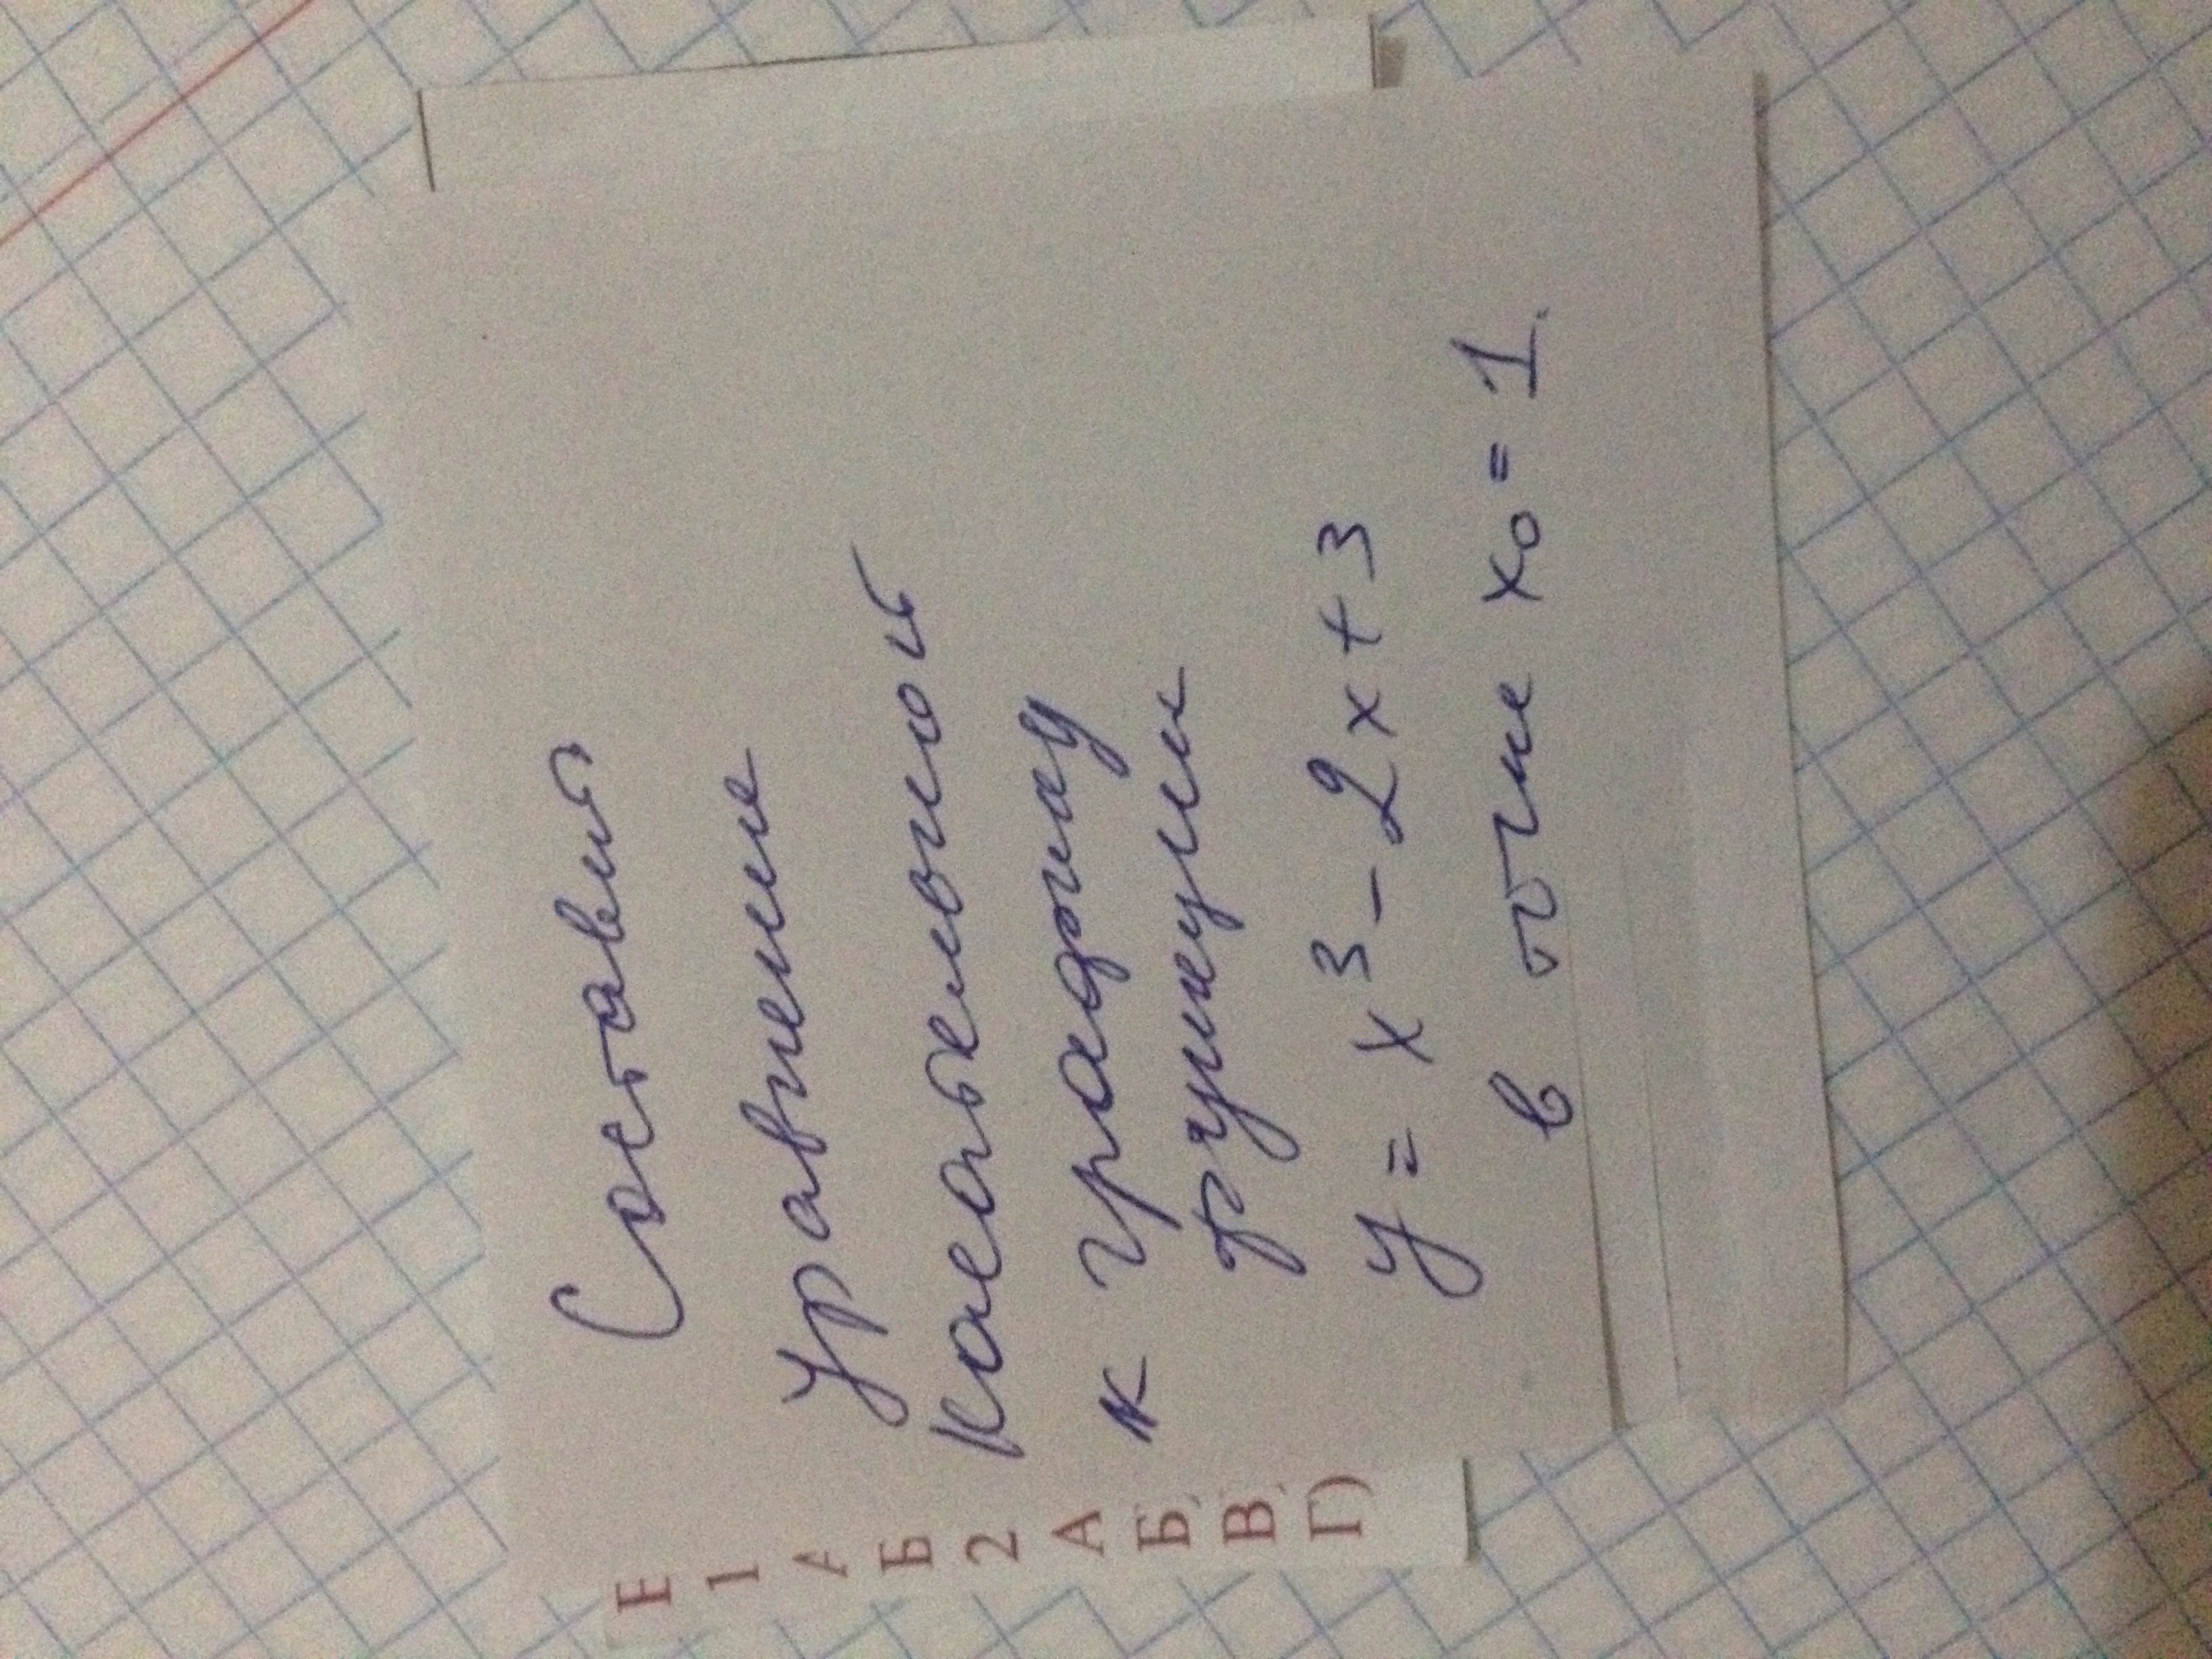 Составит
Уравнение
касательной
к графику
функции
y = x³ - 2x + 3
в точке x₀ = 1.
Е
1
А
Б
2
А
Б)
В)
Г)